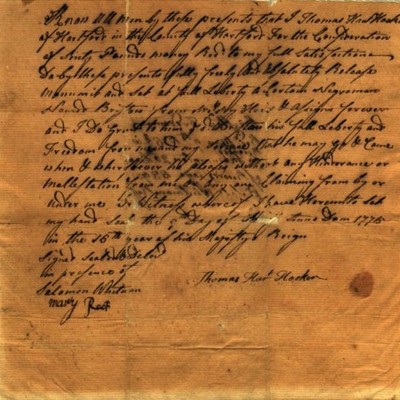 Know All Men by these presents that I Thomas Hart Hooker
of Hartford in the County of Hartford For the Consideration
of Sixty Pounds money Recd to my full Satisfaction
Do by these presents fully freely and Absolutely Release
Manumit and Set at full Liberty a Certain Negroman
Named Bristow from me my Heirs & Assigns forever
and I Do Grant to him sd Bristow his full Liberty and
Freedom from me and my Service that he may go & Come
when & where he Please without any Hinderance or
Mollestation from me or any one Claiming from by or
under me In Witness whereof I have Hereunto Set
my hand Seal the Day of Anno Dom 1775
in the 15th year of his Majestys Reign
Signed Sealed & Deliverd
in presence of
Solomon Whitman
Mary Root
Thomas Hart Hooker